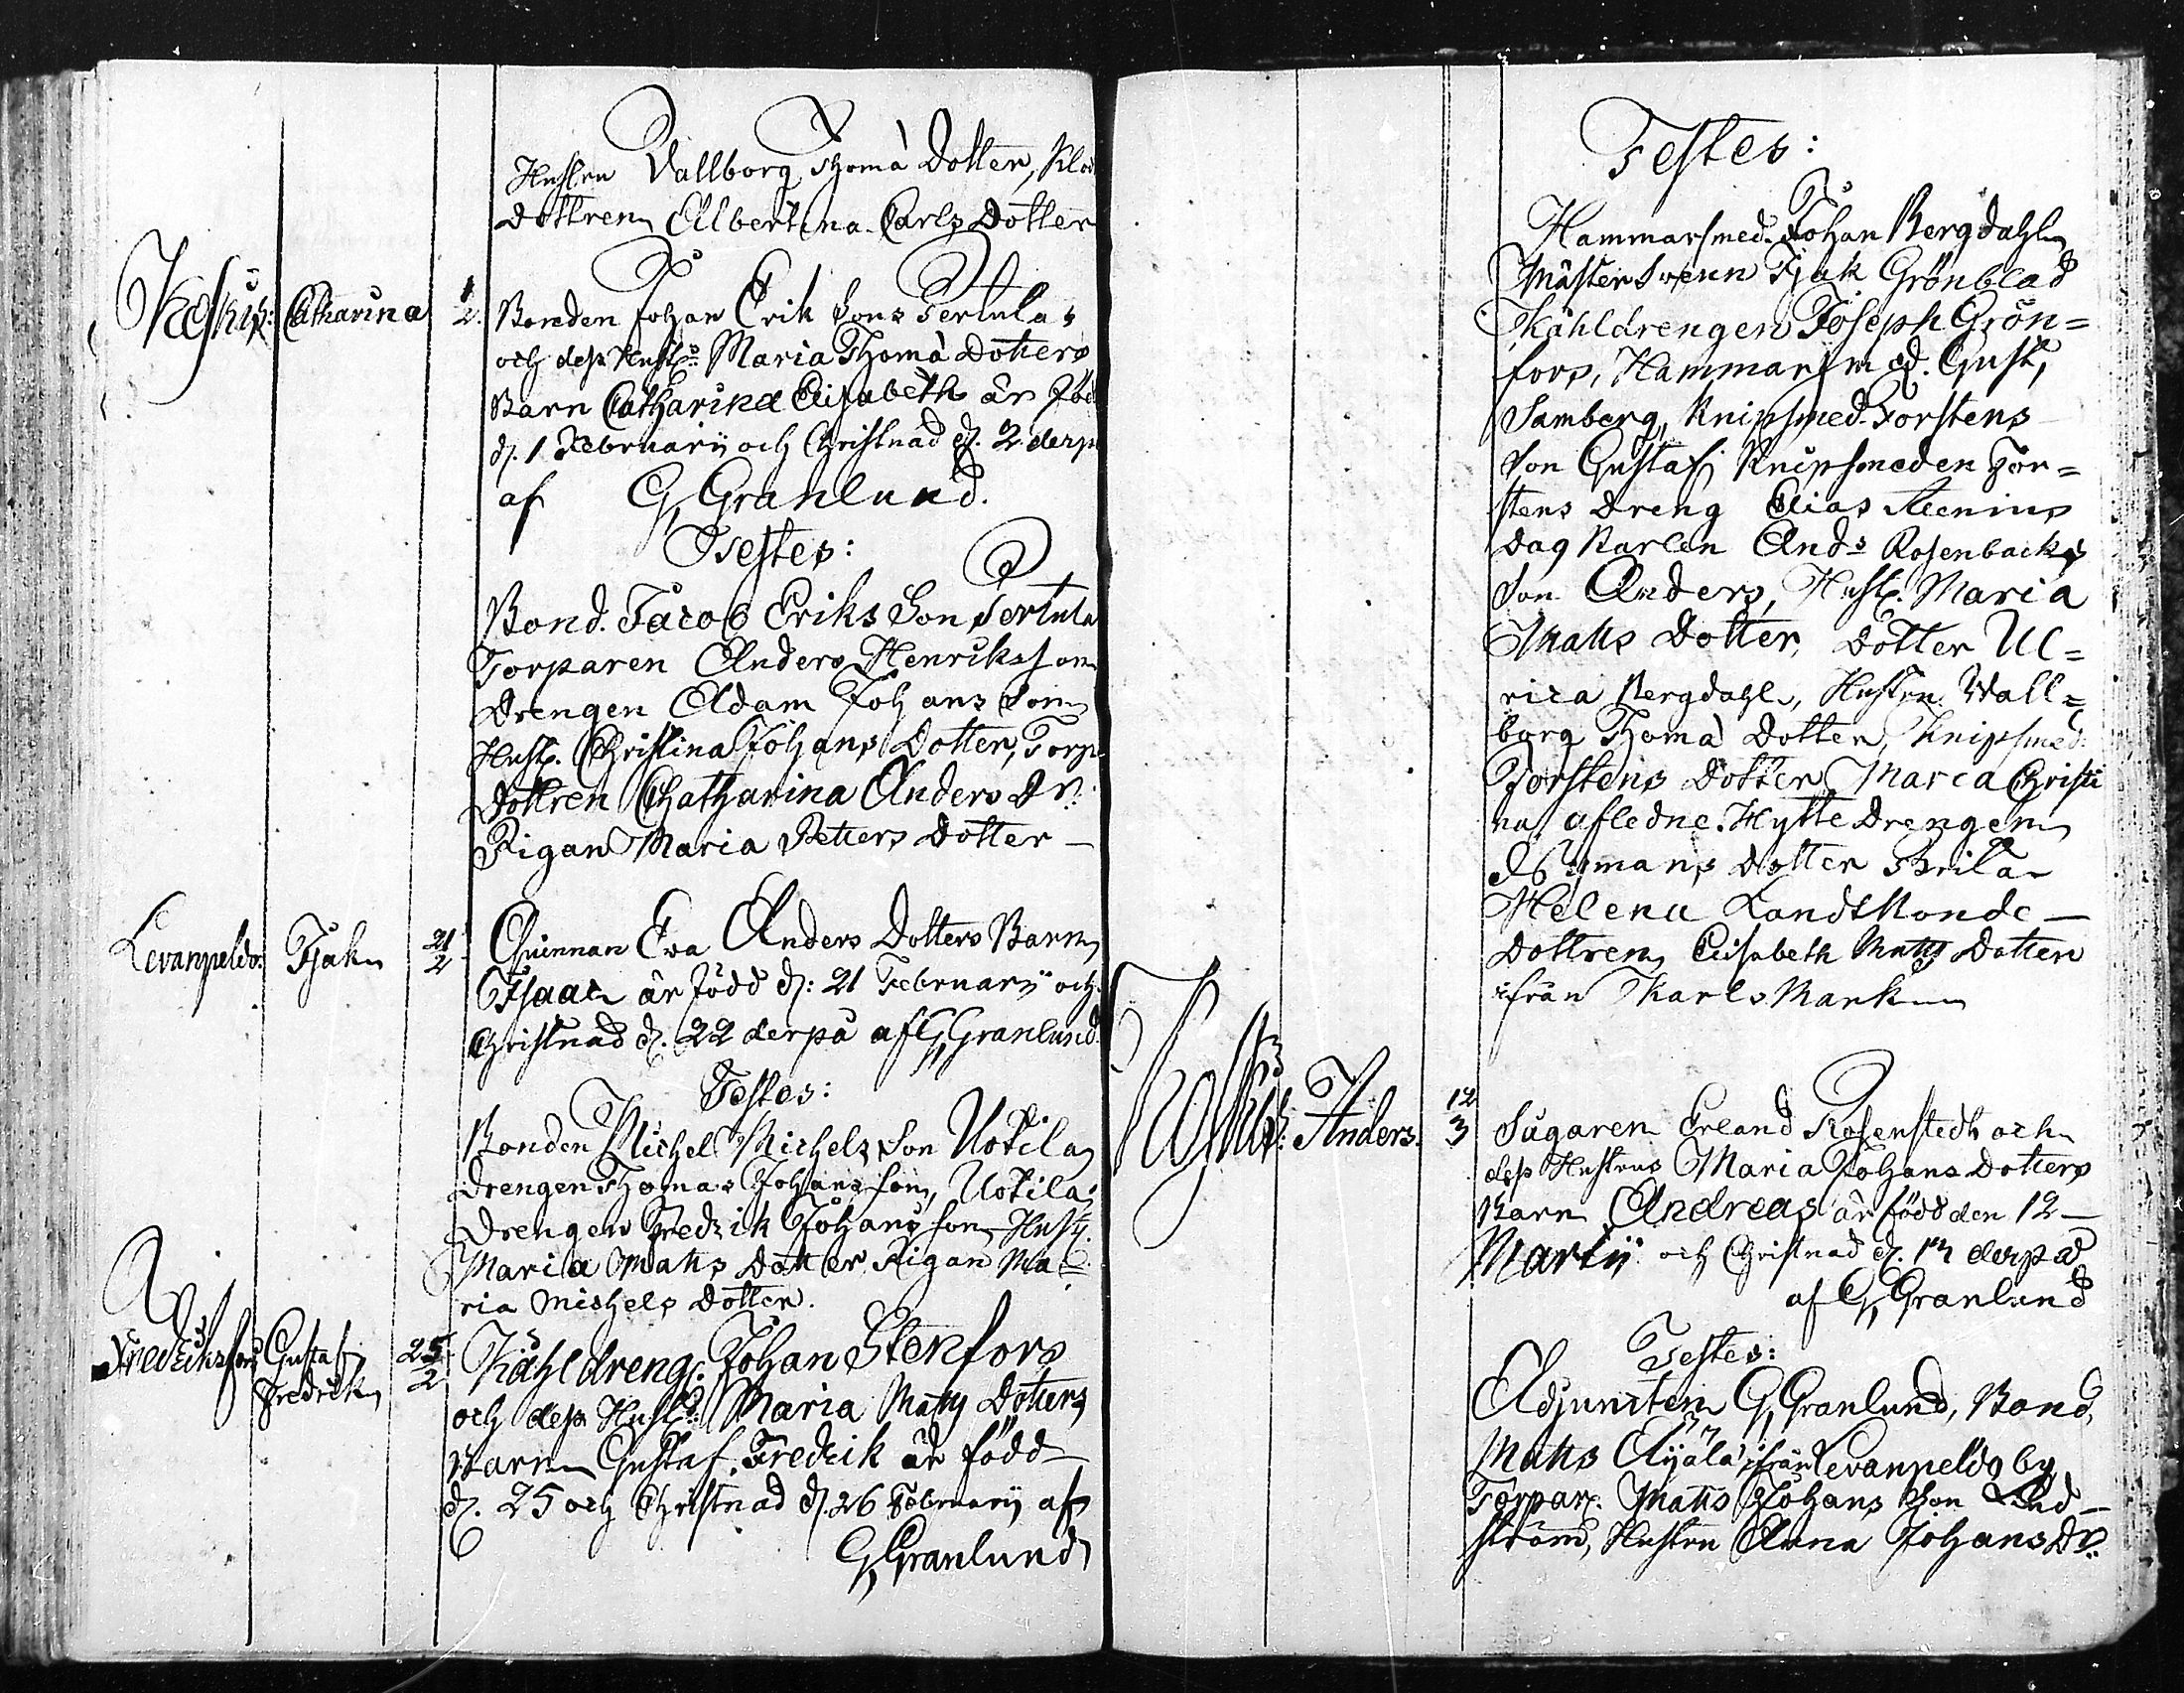 Hustru Vallborg Thomæ Dotter, Klock
Dottren Albertina Carls Dotter
Keskis: Catharina 1/2 Bonden Johan Erik Sons Sertulas
och dess Hustrs Maria Thomæ Dotters
Barn Catharina Elisabeth är född
d. 1 Februarii och Christnad d. 2 derp
af G, Granlund.
Testes:
Bond. Jacob Eriks Son Sertula
Torparen Anders Henriksson
Drengen Adam Johans Son
Hust. Christina Johans Dotter, Torp
Dottren Chatharina Anders Dr:
Pigan Maria Petters Dotter —
Levanpeldo: Isak 21/2 Quinnan Eva Anders Dotters Barn
Isaac är född d: 21 Februarii och
Christnad d. 22 derpå af G, Granlund.
Testes:
Bonden Michel Michels Son Uotila
drengen Thomas Johans son, Uotila
Drengen Fredrik Johans son Hust.
Maria Matts Dotter Pigan Ma=
ria Michels Dotter.
Fredriksfors Gustaf 25/2 Kåhldreng. Johan Stenfors
Fredrik och dess Hustr: Maria Matts Dotters
Barn Gustaf Fredrik är född
d. 25 och Christnad d. 26 Februarii af
G, Granlund
Testes:
Hammarsmed. Johan Bergdahl
Mästersvenn Isak Grönblad
Kåhldrengen Joseph Grön=
fors, Hammarsmed. Gust,
Samberg, Knipsmed. Forstens
Son Gustaf, Knipsmeden For=
stens Dreng Elias Alenius
Dag Karlen Ands Rosenbacks
Son Anders, Hust. Maria
Matts Dotter, Dotter Ul=
rica Bergdahl, Hustru Wall=
borg Thomæ Dotter, Knipsmed:
Forstens Dotter Maria Christi
na, afledne Hytte Drengen
Dotter Brita
Helena Landbonde —
Dottren Elisabeth Matts Dotter
ifrån Karlsmark
Anders. 12/3 Sågaren Erland Rosenstedt och
dess Hustrus Maria Johans Dotters
Barn Andreas är född den 12 —
Martii och Christnad d. 14 derpå
af G, Granlund
Testes:
Adjuncten G, Granlund, Bond,
Matts Äijälä ifrån Levanpeldo by
Torpar. Matts Johans Son Lind —
ström, Hustru Anna Johans Dr: